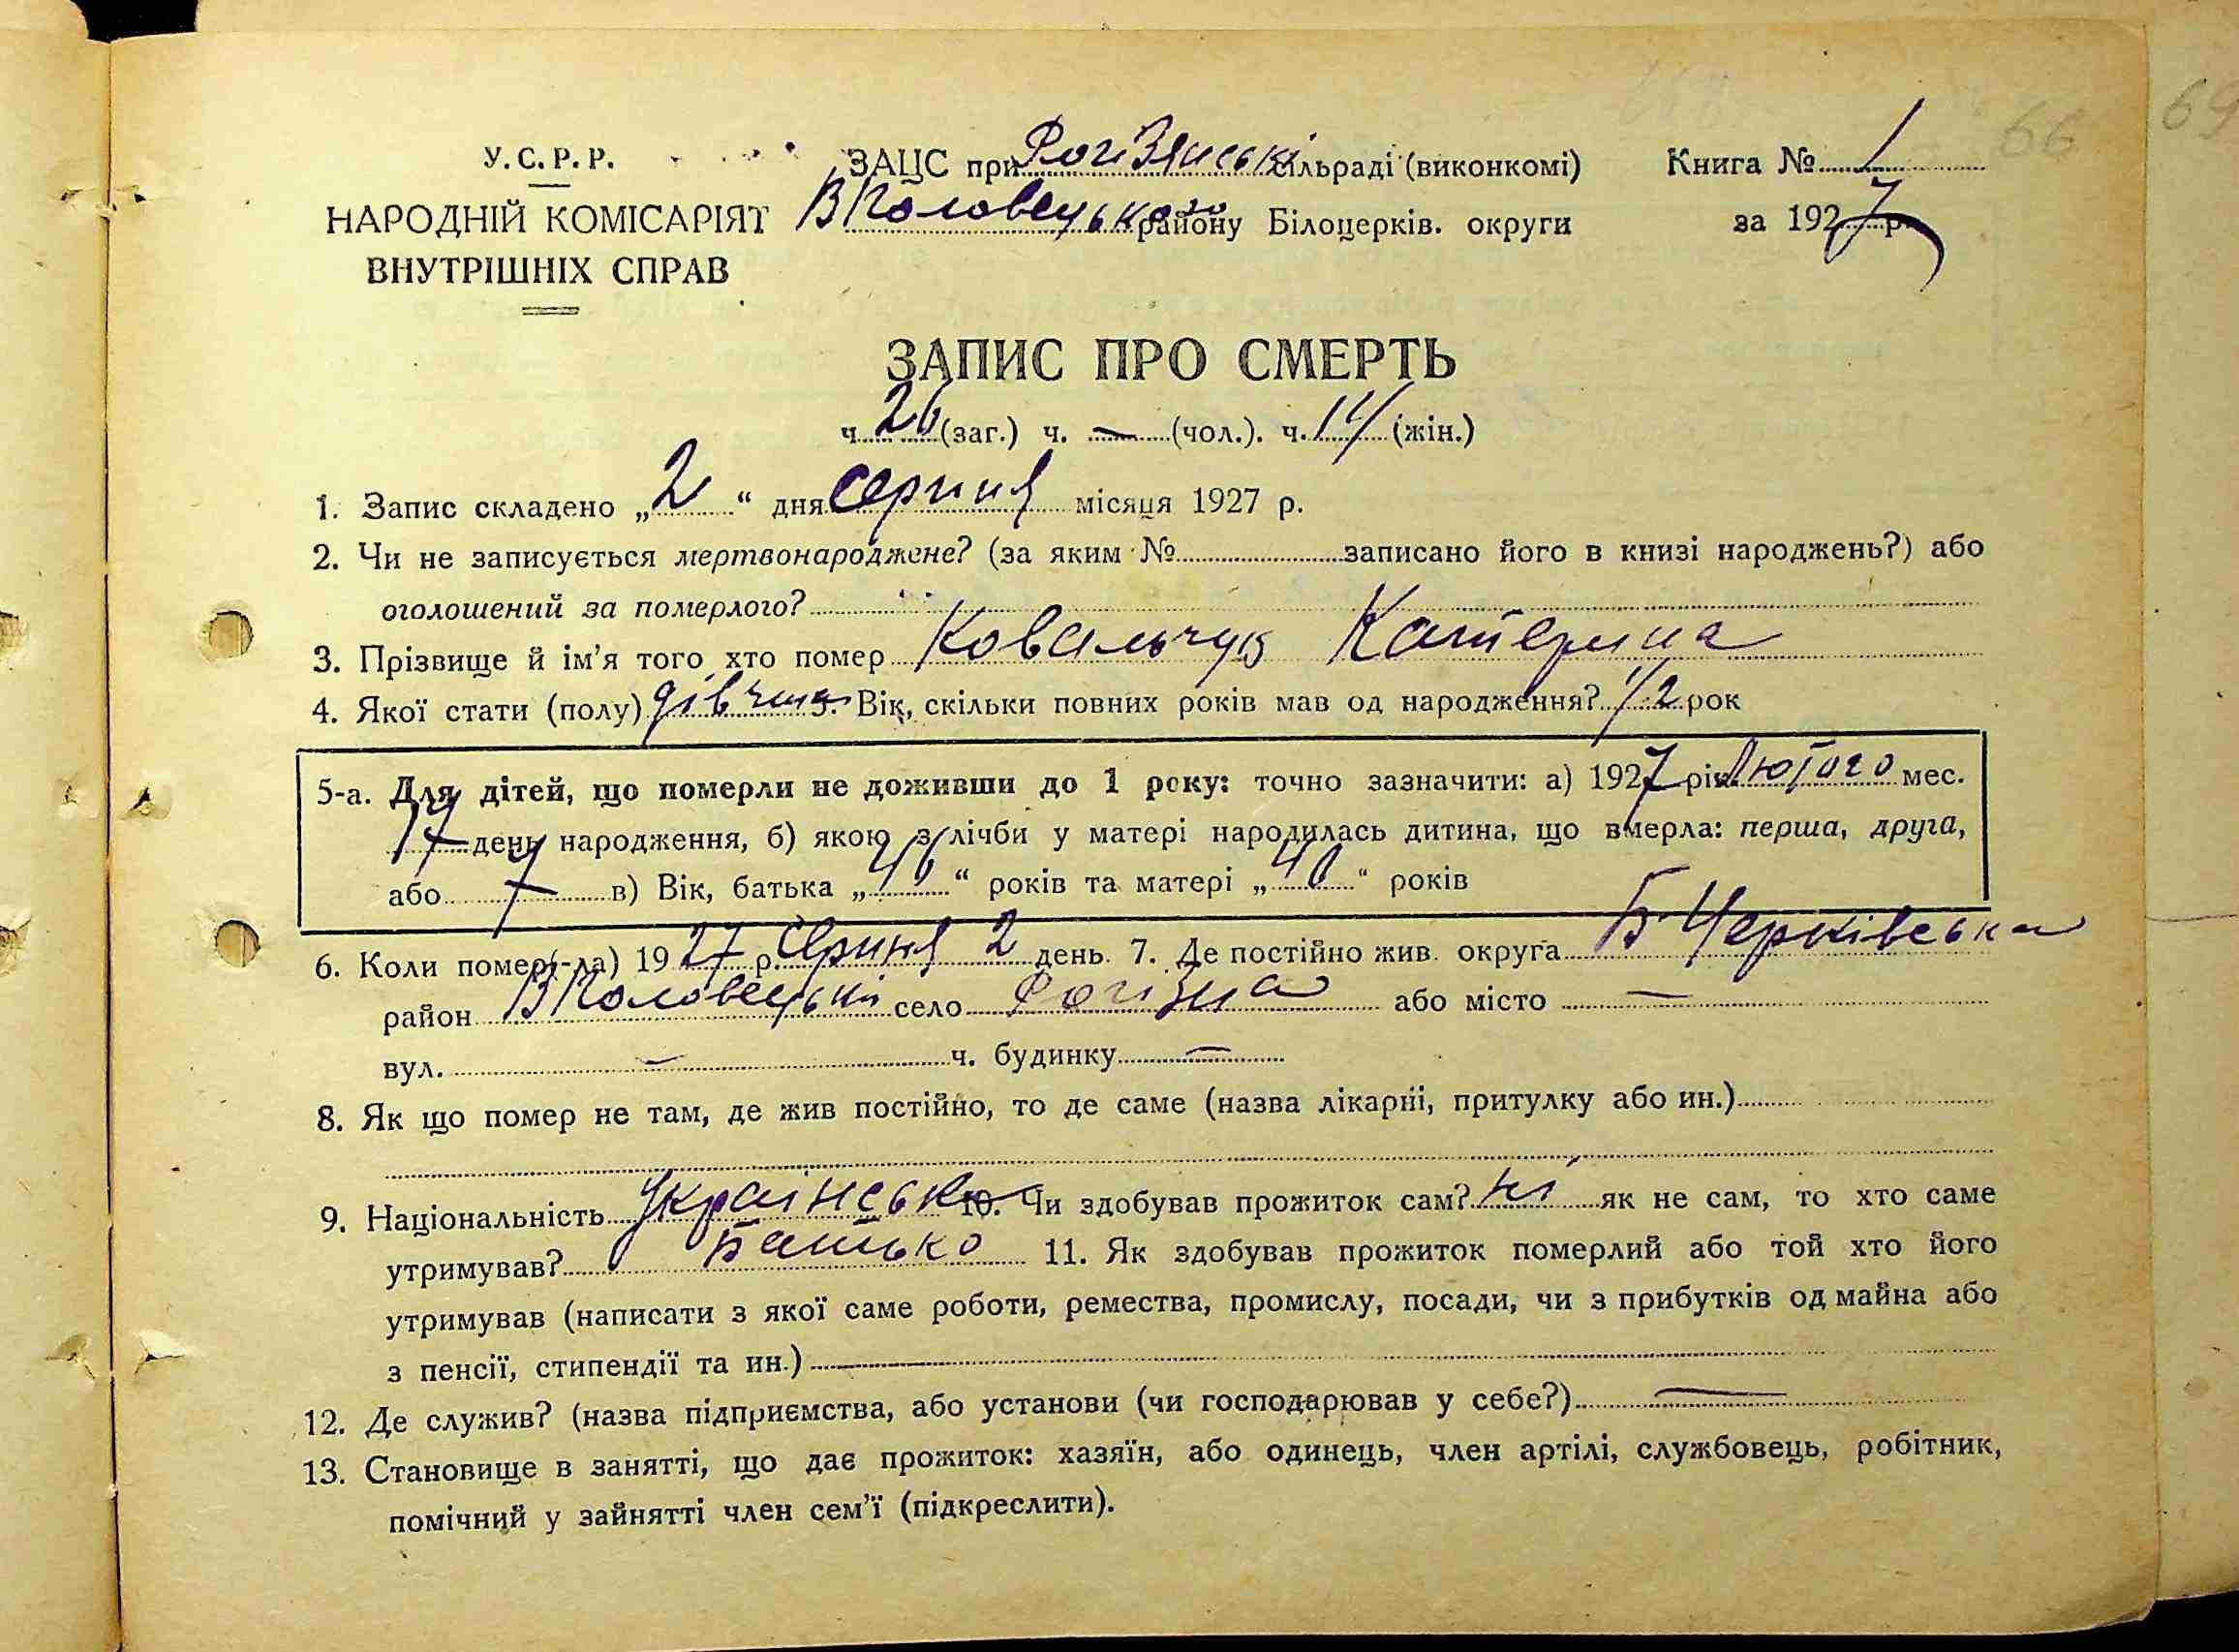 66 69
У.С.Р.Р. ЗАЦС при Рогізянські сільраді (виконкомі) Книга № 1
НАРОДНІЙ КОМІСАРІЯТ ВПоловецького району Білоцерків. округи за 1927 р.
ВНУТРІШНІХ СПРАВ
ЗАПИС ПРО СМЕРТЬ
ч. 26 (заг.) ч. — (чол.). ч. 14 (жін.)
1. Запис складено „2“ дня серпня місяця 1927 р.
2. Чи не записується мертвонароджене? (за яким № записано його в книзі народжень?) або
оголошений за померлого?
3. Прізвище й ім’я того хто помер Ковальчук Катерина
4. Якої стати (полу) дівчина 5. Вік, скільки повних років мав од народження? 1/2 рок
5-а. Для дітей, що померли не доживши до 1 року: точно зазначити: а) 1927 рік Лютого мес.
17 день народження, б) якою з лічби у матері народилась дитина, що вмерла: перша, друга,
або 7 в) Вік, батька „46“ років та матері „40“ років
6. Коли помер(-ла) 1927 р. Серпня 2 день. 7. Де постійно жив округа Б Церківська
район ВПоловецький село Рогізна або місто —
вул. — ч. будинку —
8. Як що помер не там, де жив постійно, то де саме (назва лікарні, притулку або ин.)
9. Національність Українська 10. Чи здобував прожиток сам? ні як не сам, то хто саме
утримував? Батько 11. Як здобував прожиток померлий або той хто його
утримував (написати з якої саме роботи, ремества, промислу, посади, чи з прибутків од майна або
з пенсії, стипендії та ин.) —
12. Де служив? (назва підприємства, або установи (чи господарював у себе?) —
13. Становище в занятті, що дає прожиток: хазяїн, або одинець, член артілі, службовець, робітник,
помічний у зайнятті член сем’ї (підкреслити).